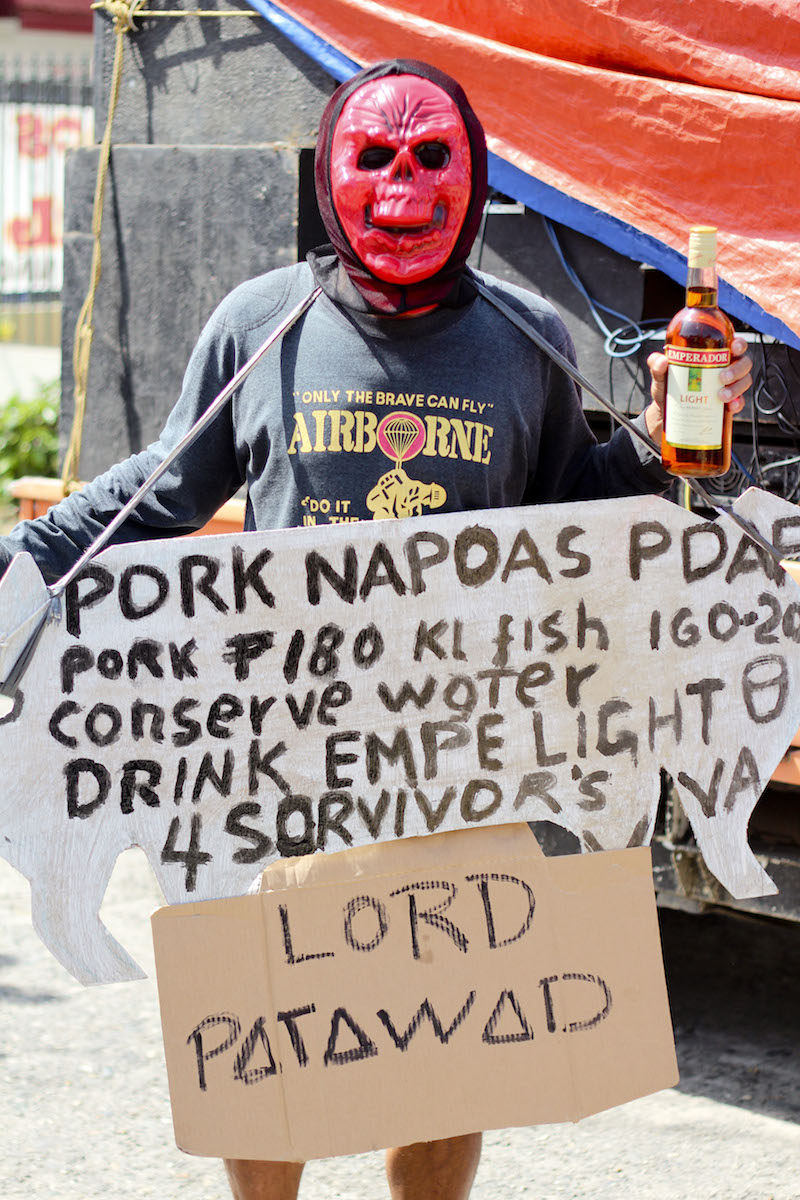 "ONLY THE BRAVE CAN FLY"
AIRBORNE
"DO IT
IN THE
EMPERADOR
LIGHT
PORK NAPOAS PDAF
PORK ₱180 KL fish 160-20
conserve woter
DRINK EMPE LIGHT
4 SORVIVOR's VA
LORD
PATAWAD